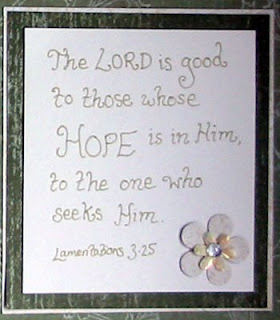 The LORD is good
to those whose
HOPE is in Him,
to the one who
seeks Him.
Lamentations 3:25